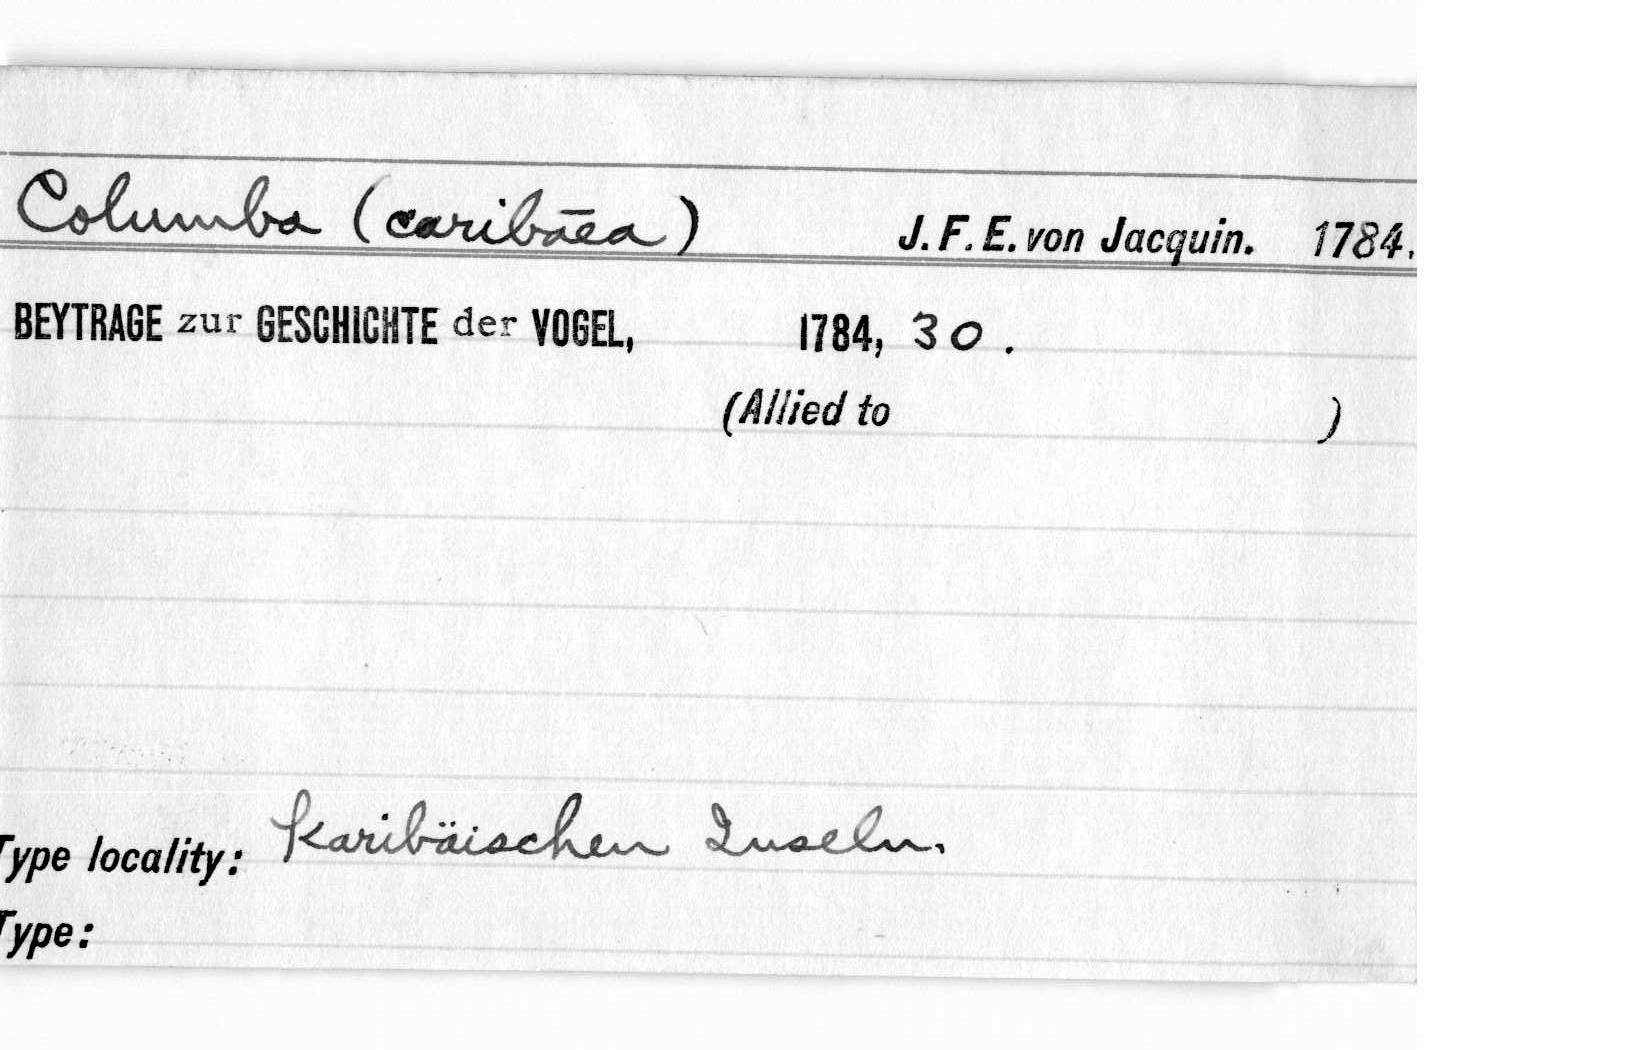 Columba (caribāea) J. F. E. von Jacquin. 1784.
BEYTRAGE zur GESCHICHTE der VOGEL, 1784, 30.
(Allied to )
Type locality: Karibäischen Inseln.
Type: